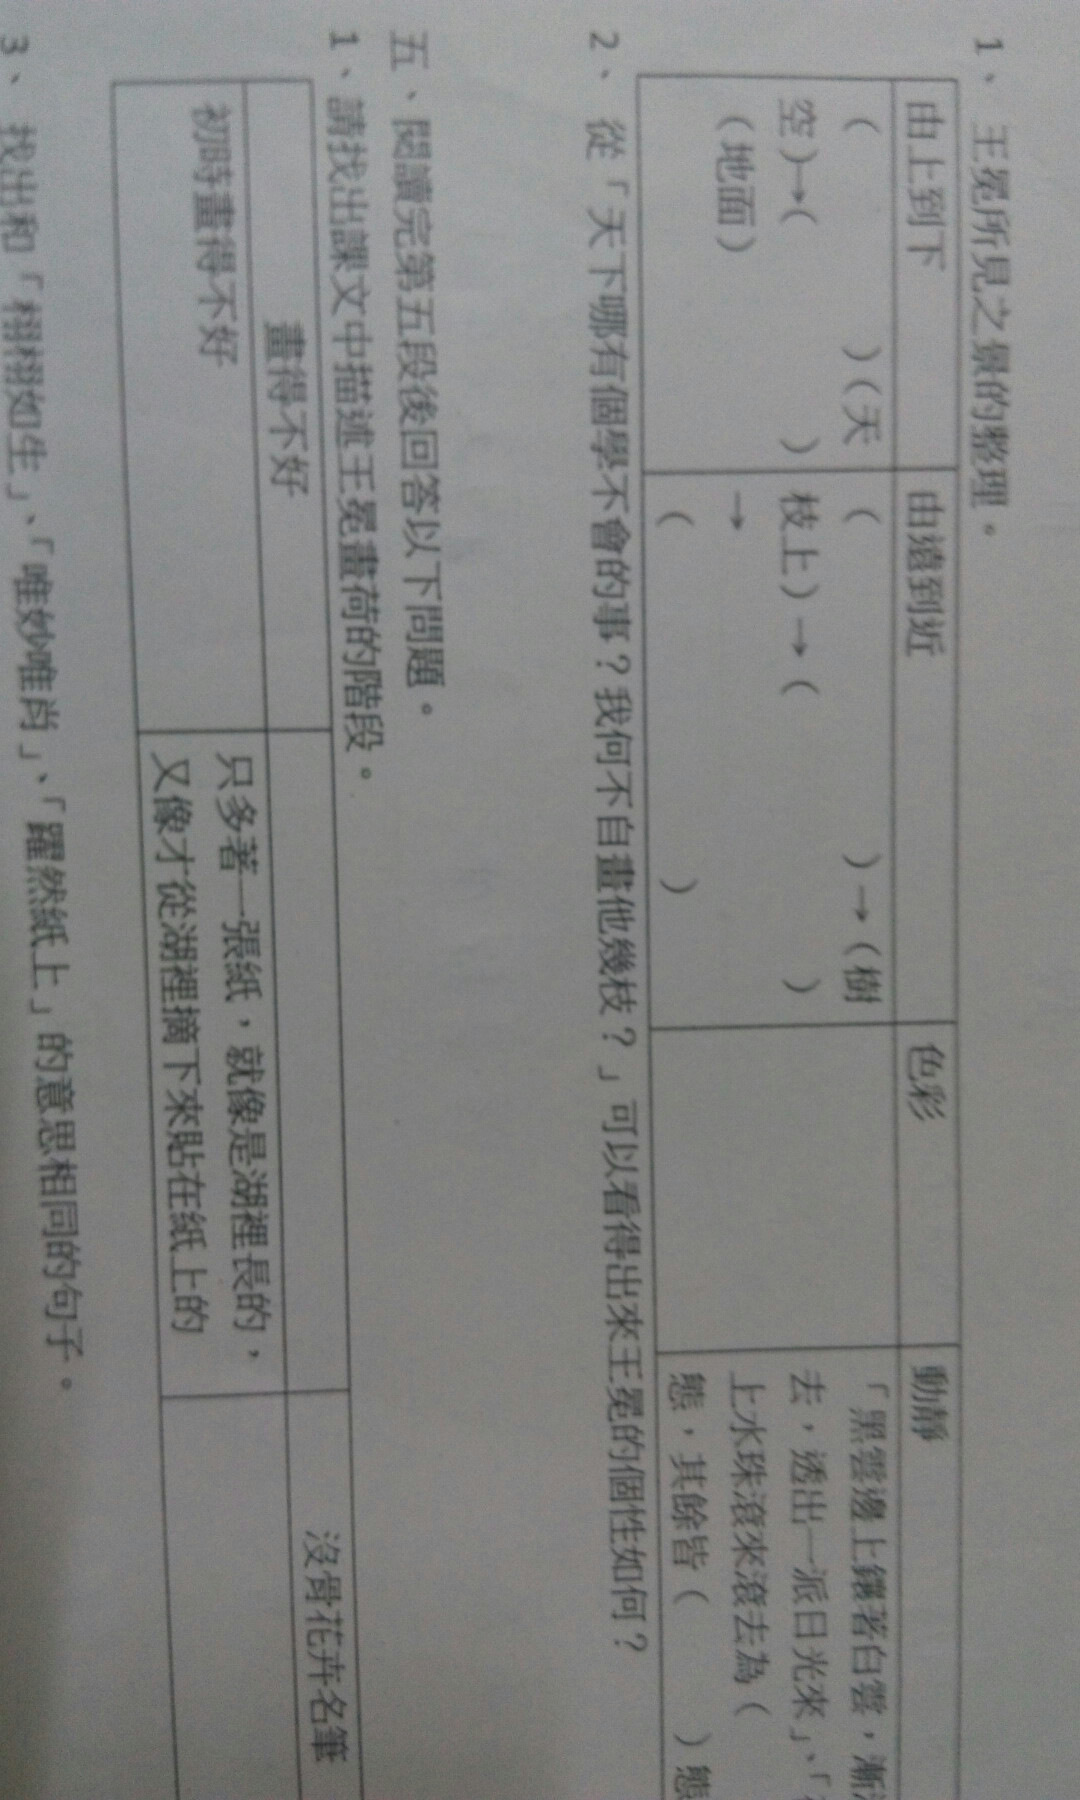 1、王冕所見之景的整理。
由上到下
由遠到近
色彩
動靜
（ ）（天
空）→（ ）
（地面）
（ ）→（樹
枝上）→（ ）
→
（ ）
「黑雲邊上鑲著白雲，漸
去，透出一派日光來」、「
上水珠滾來滾去為（
態，其餘皆（ ）態
2、從「天下哪有個學不會的事？我何不自畫他幾枝？」可以看得出來王冕的個性如何？
五、閱讀完第五段後回答以下問題。
1、請找出課文中描述王冕畫荷的階段。
畫得不好
沒骨花卉名筆
初時畫得不好
只多著一張紙，就像是湖裡長的，
又像才從湖裡摘下來貼在紙上的
3、找出和「栩栩如生」、「唯妙唯肖」、「躍然紙上」的意思相同的句子。